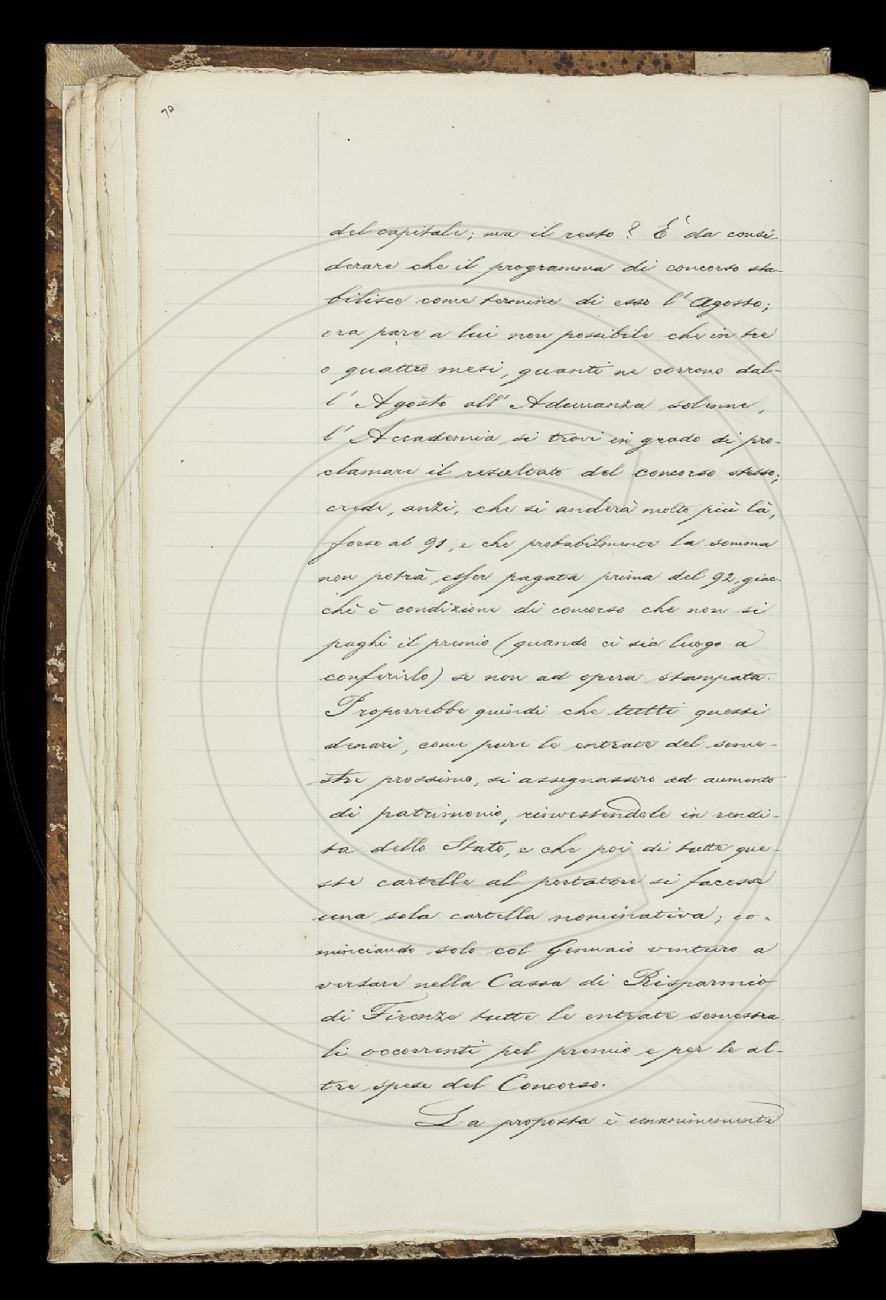 70
del capitale; ma il resto? È da consi-
derare che il programma di concorso sta-
bilisce come termine di esso l'Agosto;
ora pare a lui non possibile che in tre
o quattro mesi, quanti ne corrono dal-
l'Agosto all'Adunanza solenne,
l'Accademia si trovi in grado di pro-
clamare il resultato del concorso stesso;
crede, anzi, che si anderà molto più là,
forse al 91, e che probabilmente la somma
non potrà esser pagata prima del 92, giac-
chè è condizione di concorso che non si
paghi il premio (quando ci sia luogo a
conferirlo) se non ad opera stampata.
Proporrebbe quindi che tutti questi
denari, come pure le entrate del seme-
stre prossimo, si assegnassero ad aumento
di patrimonio, rinvestendole in rendi-
ta dello Stato, e che poi di tutte que-
ste cartelle al portatore si facesse
una sola cartella nominativa; co-
minciando solo col Gennaio venturo a
versare nella Cassa di Risparmio
di Firenze tutte le entrate semestra-
li occorrenti pel premio e per le al-
tre spese del Concorso.
La proposta è unanimemente